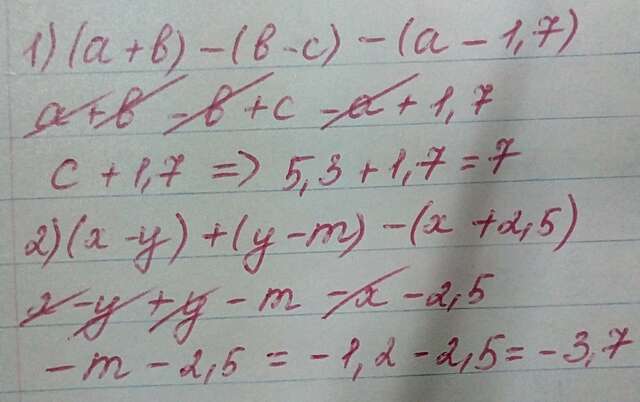 1) (а + в) - (в - с) - (а - 1,7)
а + в - в + с - а + 1,7
с + 1,7 => 5,3 + 1,7 = 7
2) (х - у) + (у - m) - (х + 2,5)
х - у + у - m - х - 2,5
- m - 2,5 = - 1,2 - 2,5 = - 3,7